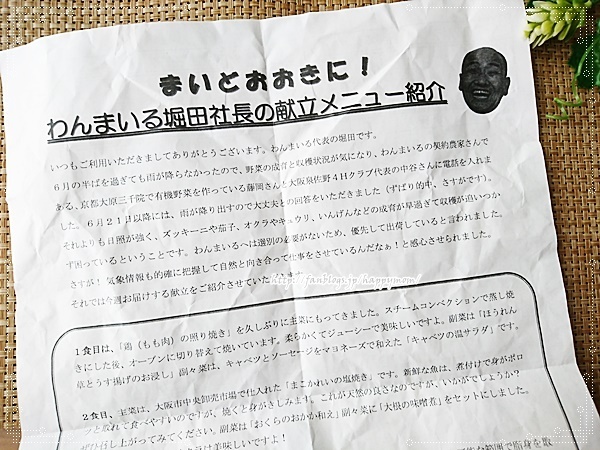 まいどおおきに！
わんまいる堀田社長の献立メニュー紹介
いつもご利用いただきましてありがとうございます。わんまいる代表の堀田です。
6月の半ばを過ぎても雨が降らなかったので、野菜の成育と収穫状況が気になり、わんまいるの契約農家さんで
ある、京都大原三千院で有機野菜を作っている藤岡さんと大阪泉佐野4Hクラブ代表の中谷さんに電話を入れま
した。6月21日以降には、雨が降り出すので大丈夫との回答をいただきました（ずばり的中、さすがです）。
それよりも日照が強く、ズッキーニや茄子、オクラやキュウリ、いんげんなどの成育が早過ぎて収穫が追いつか
ず困っているということです。わんまいるへは選別の必要がないため、優先して出荷していると言われました。
さすが！気象情報も的確に把握して自然と向き合って仕事をさせているんだなぁ！と感心させられました。
それでは今週お届けする献立をご紹介させていた
http://fanblogs.jp/happymom/
1食目は、「鶏（もも肉）の照り焼き」を久しぶりに主菜にもってきました。スチームコンベクションで蒸し焼
きにした後、オーブンに切り替えて焼いています。柔らかくてジューシーで美味しいですよ。副菜は「ほうれん
草とうす揚げのお浸し」副々菜は、キャベツとソーセージをマヨネーズで和えた「キャベツの温サラダ」です。
2食目、主菜は、大阪市中央卸売市場で仕入れた「まこかれいの塩焼き」です。新鮮な魚は、煮付けで身がポロ
ッと取れて食べやすいのですが、焼くと身がきしみます。これが天然の良さなのですが、いかがでしょうか？
ぜひ召し上がってみてください。副菜は「おくらのおかか和え」副々菜に「大根の味噌煮」をセットにしました。
は美味しいですよ！